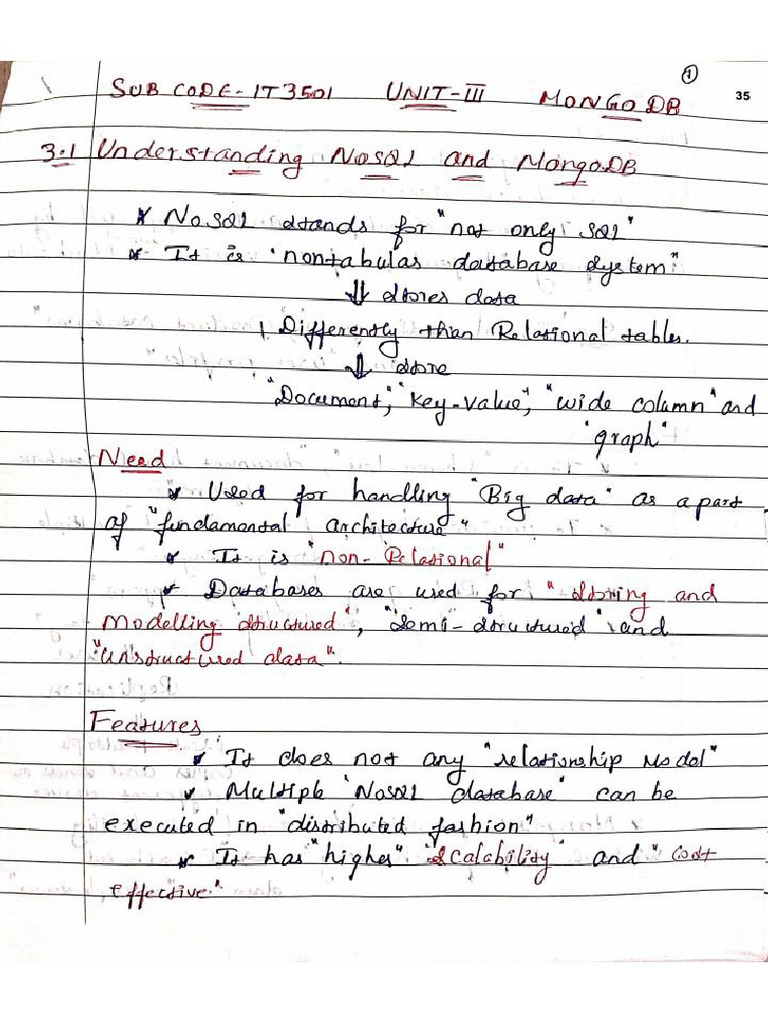 ①
SUB CODE-IT3501 UNIT-III MONGO DB 35
3.1 Understanding NOSQL and MongoDB
* NoSQL stands for "not only SQL"
* It is "nontabular database system"
⇓ stores data
Differently than Relational tables.
⇓ store
"Document," "key-value", "wide column" and
"graph"
Need
* Used for handling "Big data" as a part
of "fundamental architecture"
* It is "non-Relational"
* Databases are used for "storing and
Modelling structured", "semi-structured" and
"unstructured data".
Features
* It does not any "relationship Model"
* Multiple "NoSQL database" can be
executed in "distributed fashion"
* It has "higher" "scalability" and "cost
effective"